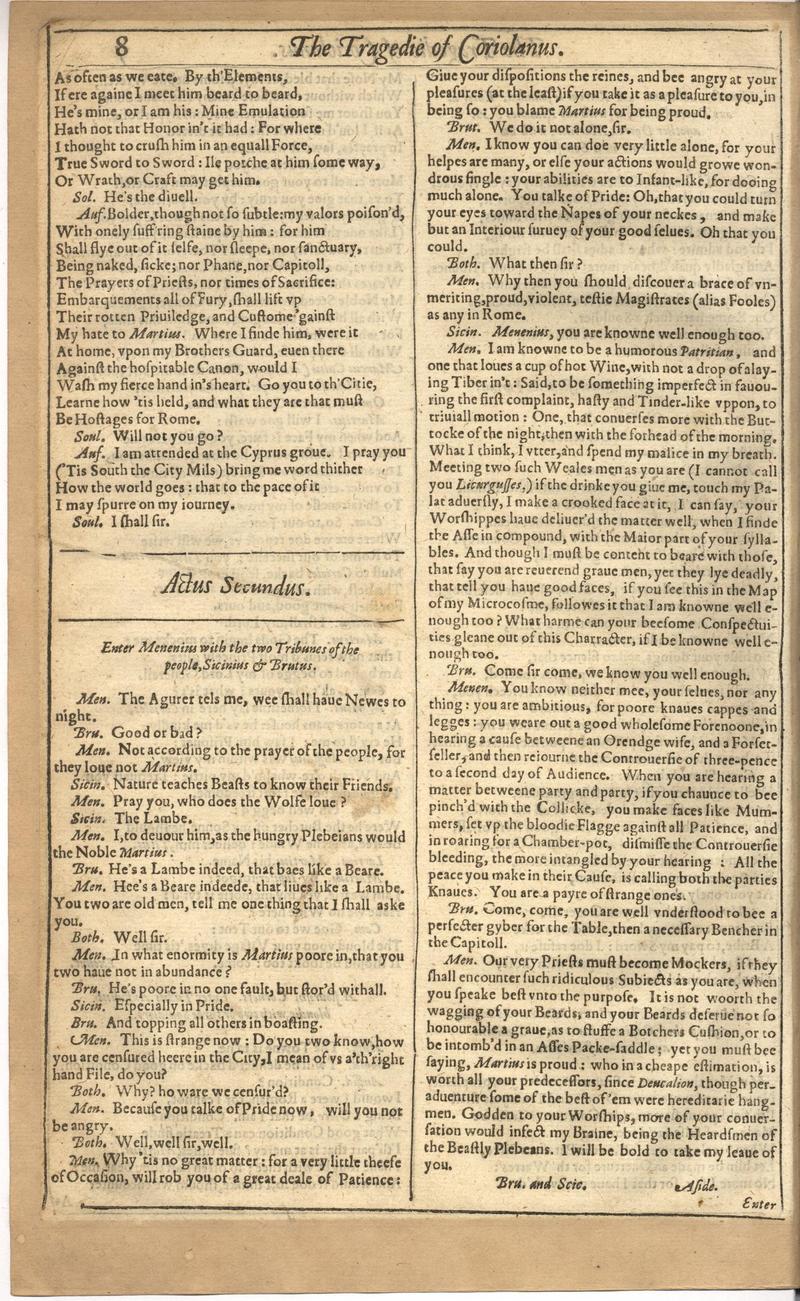 8
The Tragedie of Coriolanus.
As often as we eate. By th'Elements,
If ere againe I meet him beard to beard,
He's mine, or I am his: Mine Emulation
Hath not that Honor in't it had: For where
I thought to crush him in an equall Force,
True Sword to Sword: Ile potche at him some way,
Or Wrath,or Craft may get him.
Sol. He's the diuell.
Auf.Bolder,though not so subtle:my valors poison'd,
With onely suff'ring staine by him: for him
Shall flye out of it selfe, nor sleepe, nor sanctuary,
Being naked, sicke; nor Phane,nor Capitoll,
The Prayers of Priests, nor times of Sacrifice:
Embarquements all of Fury,shall lift vp
Their rotten Priuiledge, and Custome 'gainst
My hate to Martius. Where I finde him, were it
At home, vpon my Brothers Guard, euen there
Against the hospitable Canon, would I
Wash my fierce hand in's heart. Go you to th'Citie,
Learne how 'tis held, and what they are that must
Be Hostages for Rome.
Soul. Will not you go?
Auf. I am attended at the Cyprus groue. I pray you
('Tis South the City Mils) bring me word thither
How the world goes: that to the pace of it
I may spurre on my iourney.
Soul. I shall sir.
Actus Secundus.
Enter Menenius with the two Tribunes of the
people,Sicinius & Brutus.
Men. The Agurer tels me, wee shall haue Newes to
night.
Bru. Good or bad?
Men. Not according to the prayer of the people, for
they loue not Martius.
Sicin. Nature teaches Beasts to know their Friends.
Men. Pray you, who does the Wolfe loue?
Sicin. The Lambe.
Men. I,to deuour him,as the hungry Plebeians would
the Noble Martius.
Bru. He's a Lambe indeed, that baes like a Beare.
Men. Hee's a Beare indeede, that liues like a Lambe.
You two are old men, tell me one thing that I shall aske
you.
Both. Well sir.
Men. In what enormity is Martius poore in,that you
two haue not in abundance?
Bru. He's poore in no one fault, but stor'd withall.
Sicin. Especially in Pride.
Bru. And topping all others in boasting.
Men. This is strange now: Do you two know,how
you are censured heere in the City,I mean of vs a'th'right
hand File, do you?
Both. Why? ho ware we censur'd?
Men. Because you talke of Pride now, will you not
be angry.
Both. Well,well sir,well.
Men. Why 'tis no great matter: for a very little theefe
of Occasion, will rob you of a great deale of Patience:
Giue your dispositions the reines, and bee angry at your
pleasures (at the least)if you take it as a pleasure to you,in
being so: you blame Martius for being proud.
Brut. We do it not alone,sir.
Men. I know you can doe very little alone, for your
helpes are many, or else your actions would growe won-
drous single: your abilities are to Infant-like, for dooing
much alone. You talke of Pride: Oh,that you could turn
your eyes toward the Napes of your neckes, and make
but an Interiour suruey of your good selues. Oh that you
could.
Both. What then sir?
Men. Why then you should discouer a brace of vn-
meriting,proud,violent, testie Magistrates (alias Fooles)
as any in Rome.
Sicin. Menenius, you are knowne well enough too.
Men. I am knowne to be a humorous Patritian, and
one that loues a cup of hot Wine,with not a drop of alay-
ing Tiber in't: Said,to be something imperfect in fauou-
ring the first complaint, hasty and Tinder-like vppon, to
triuiall motion: One, that conuerses more with the But-
tocke of the night,then with the forhead of the morning.
What I think, I vtter,and spend my malice in my breath.
Meeting two such Weales men as you are (I cannot call
you Licurgusses,) if the drinke you giue me, touch my Pa-
lat aduersly, I make a crooked face at it, I can say, your
Worshippes haue deliuer'd the matter well, when I finde
the Asse in compound, with the Maior part of your sylla-
bles. And though I must be content to beare with those,
that say you are reuerend graue men, yet they lye deadly,
that tell you haue good faces, if you see this in the Map
of my Microcosme, followes it that I am knowne well e-
nough too? What harme can your beesome Conspectui-
ties gleane out of this Charracter, if I be knowne well e-
nough too.
Bru. Come sir come, we know you well enough.
Menen. You know neither mee, your selues, nor any
thing: you are ambitious, for poore knaues cappes and
legges: you weare out a good wholesome Forenoone,in
hearing a cause betweene an Orendge wife, and a Forset-
seller, and then reiourne the Controuersie of three-pence
to a second day of Audience. When you are hearing a
matter betweene party and party, if you chaunce to bee
pinch'd with the Collicke, you make faces like Mum-
mers, set vp the bloodie Flagge against all Patience, and
in roaring for a Chamber-pot, dismisse the Controuersie
bleeding, the more intangled by your hearing: All the
peace you make in their Cause, is calling both the parties
Knaues. You are a payre of strange ones.
Bru. Come, come, you are well vnderstood to bee a
perfecter gyber for the Table,then a necessary Bencher in
the Capitoll.
Men. Our very Priests must become Mockers, if they
shall encounter such ridiculous Subiects as you are, when
you speake best vnto the purpose. It is not woorth the
wagging of your Beards, and your Beards deserue not so
honourable a graue,as to stuffe a Botchers Cushion,or to
be intomb'd in an Asses Packe-saddle; yet you must bee
saying, Martius is proud: who in a cheape estimation, is
worth all your predecessors, since Deucalion, though per-
aduenture some of the best of 'em were hereditarie hang-
men. Godden to your Worships, more of your conuer-
sation would infect my Braine, being the Heardsmen of
the Beastly Plebeans. I will be bold to take my leaue of
you.
Bru. and Scic. Aside.
Enter